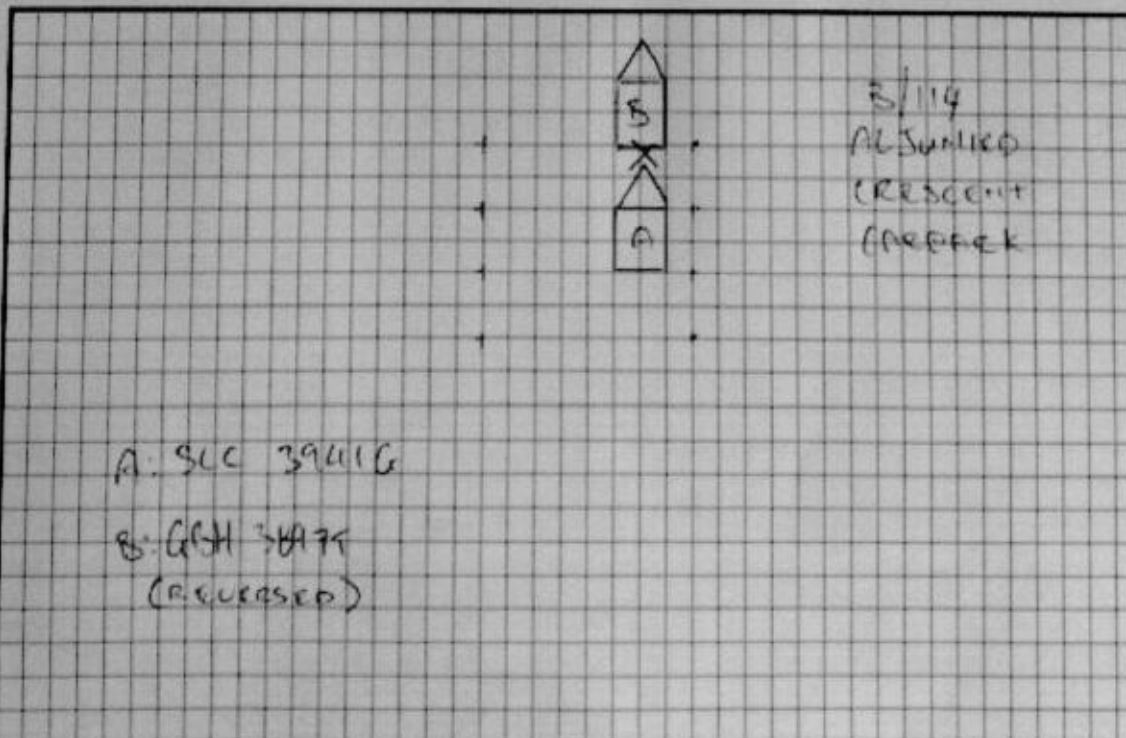 B
A
B/114
ALJUNIED
CRESCENT
CARPARK
A: SLC 3941G
B: GBH
(REVERSED)